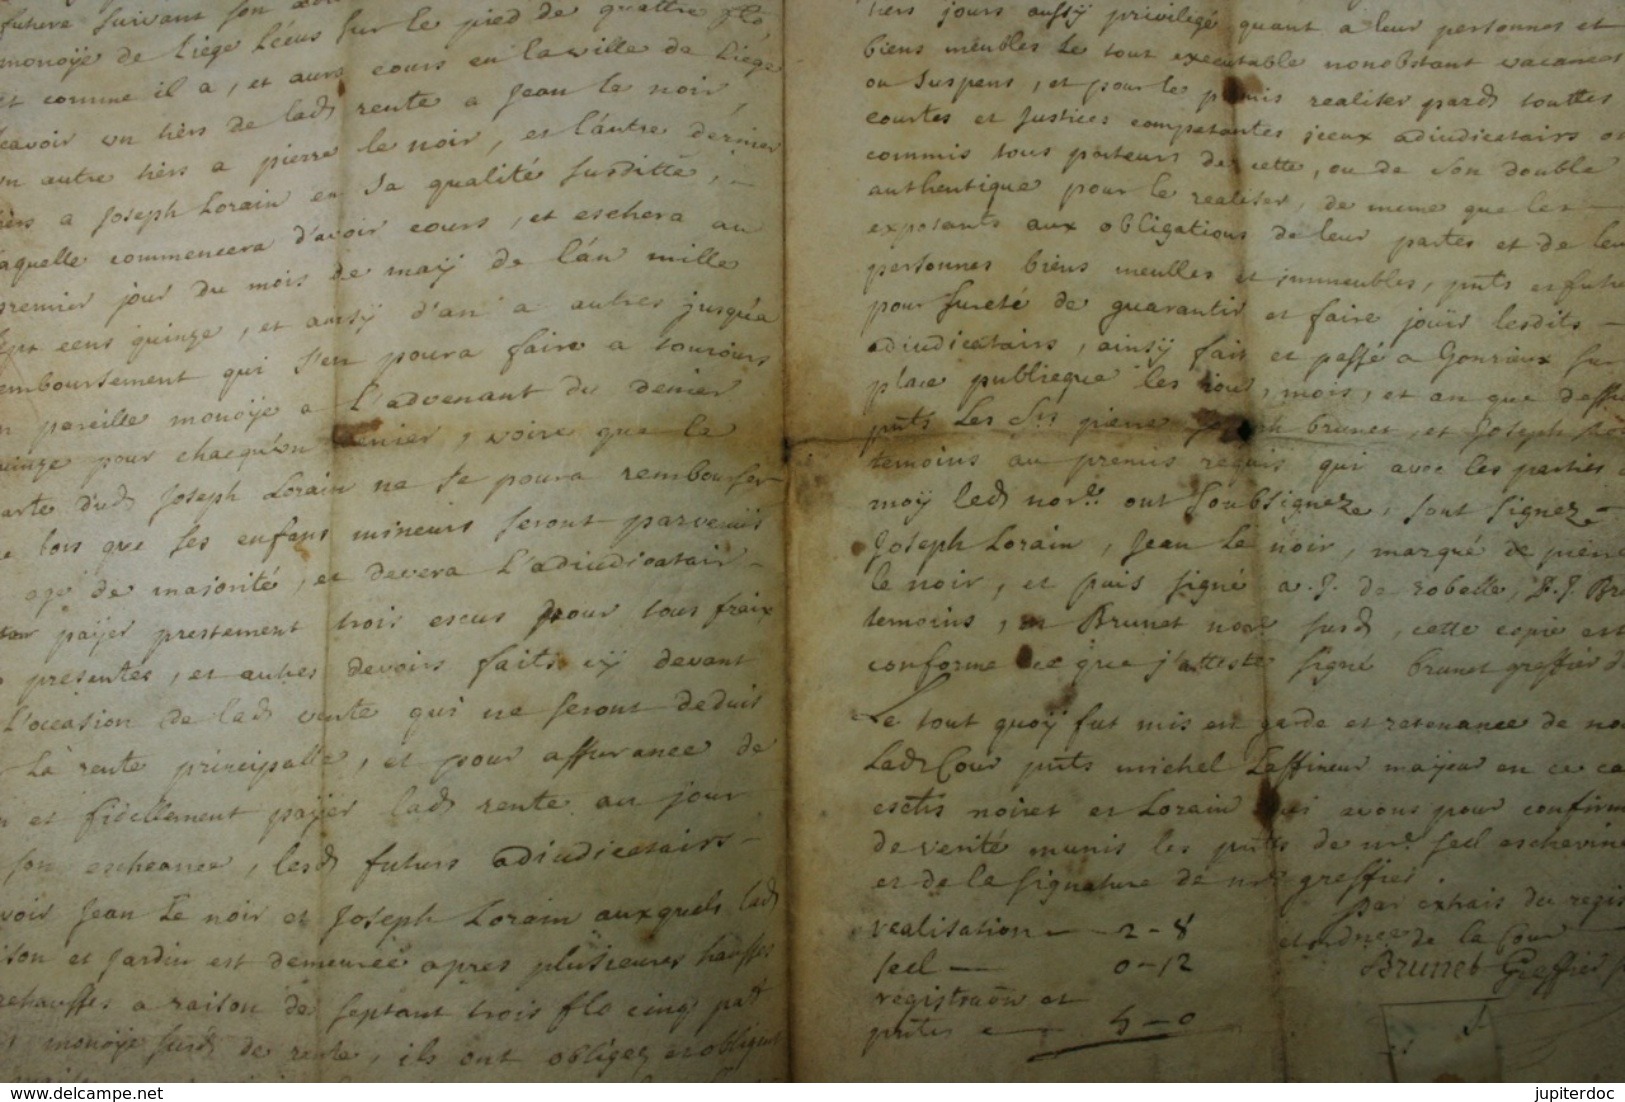 future suivant son
monoÿe de Liége Lécus sur le pied de quattre flo
et comme il a, et aura cours en la ville de Liége
scavoir un tièrs de lad rente a Jean le noir,
un autre tièrs a pierre le noir, et l'áutre dérnier
tièrs a Joseph Lorain en sa qualité susditte, –
laquelle commencera d'avoir cours, et eschera au
premier jour du mois de maÿ de l'án mille
sept cens quinze, et aussÿ d'an a autres jusqu'a
remboursement qui s'en poura faire a tousiours
en pareille monoÿe a l'advenant du denier
quinze pour chacqu'un denier, voire que la
parte dud Joseph Lorain ne se poura rembourser
que lors que ses enfans mineurs seront parvenus
age de majorité, et devera L'adiudicatair –
payer prestement trois escus pour tous fraix
presentes, et autres devoirs faits icÿ devant
L'occasion de lad vente qui ne seront deduis
La rente principalle, et pour assurance de
et fidellement paÿer lad rente au jour
son escheance, lesd futurs adiudicatairs –
scavoir Jean Le noir et Joseph Lorain auxquels lad
maison et Jardin est demeurée apres plusieures hausses
rehausses a raison de septant trois flo cinq pat
monoÿe susd de rente, ils ont obligez et obligent
tiers jours aussÿ privilegé quant a leur personnes et
biens meubles Le tout executable nonobstant vacances
ou suspens, et pour le premis realiser pard touttes
courtes et Justices competantes jceux adiudicatairs ont
commis tous porteurs de cette, ou de son double
authentique pour le realiser, de meme que les –
exposants aux obligations de leur partes et de leur
personnes biéns meubles et immeubles, pnts et future
pour sureté de guarantir et faire joüir lesdits –
adiudicatairs, ainsÿ fait et passé a Gonrieux sur
place publicque les jour, mois, et an que dessus
pnts Les Srs pierre Joseph brunet, et Joseph
temoins au premis requis qui avec les parties et
moÿ led nore ont soubsignez, sont signez –
Joseph Lorain, Jean Le noir, marqué de pierre
le noir, et puis signé a. J. de robelle, P. J. Bru
temoins, et Brunet nore susd, cette copie est
conforme ce que j'atteste signé brunet greffier
Le tout quoÿ fut mis en garde et retenance de nous
Ladt Cour pnts michel Laffineur maÿeur en ce cas
eschs noiret et Lorain qui avons pour confirm
de verité munis les pntes de nre seel eschevine
et de la signature de nre greffier.
par extrais du regis
et ordnce de la Cour
Brunet Greffier
realisation — 2-8
seel — 0-12
registraõn et
pntes — 5-0
jupiterdoc